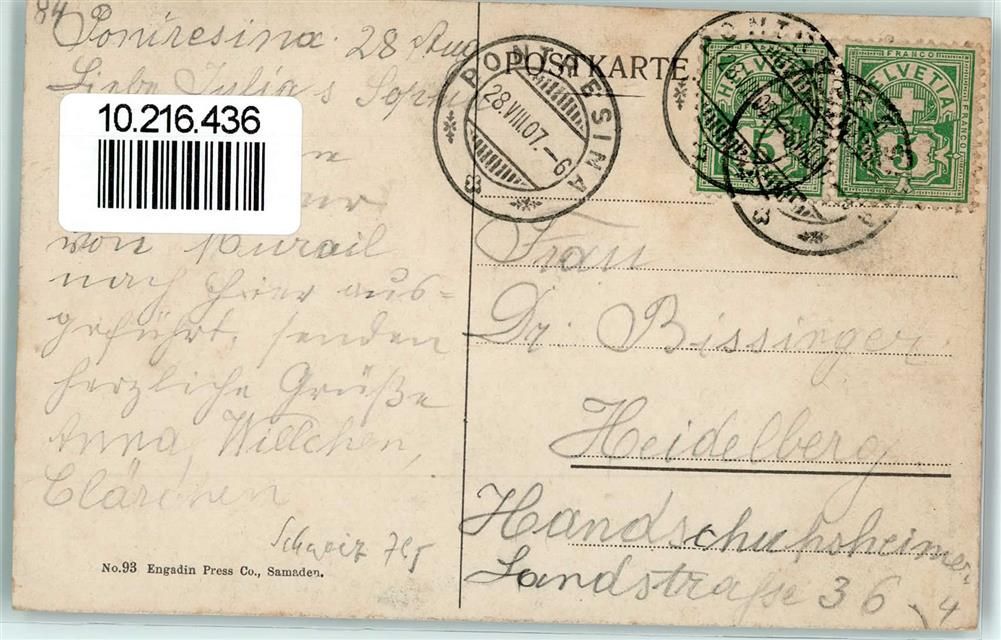 84
Pontresina. 28 Aug
Liebe Julia s Soph
10.216.436
von
nach hier aus-
geführt, senden
herzliche Grüße
Anna, Willchen,
Clärchen
Schweiz
No.93 Engadin Press Co., Samaden.
POSTKARTE
PONTRESINA
28.VIII.07.–6
FRANCO
HELVETIA
5
FRANCO
HELVETIA
5
Frau
Dr. Bissinger
Heidelberg
Handschuhsheimer
Landstraße 36